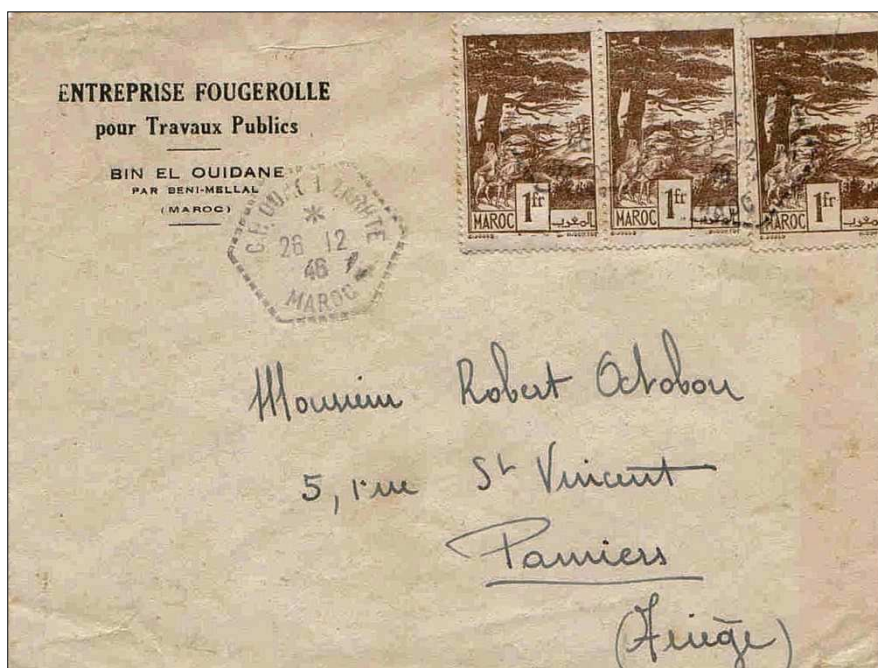 ENTREPRISE FOUGEROLLE
pour Travaux Publics
BIN EL OUIDANE
PAR BENI-MELLAL
(MAROC)
26 12
46
MAROC
1fr
MAROC المغرب
1fr
MAROC المغرب
1fr
MAROC المغرب
Monsieur Robert Octobon
5, rue St Vincent
Pamiers
(Ariège)